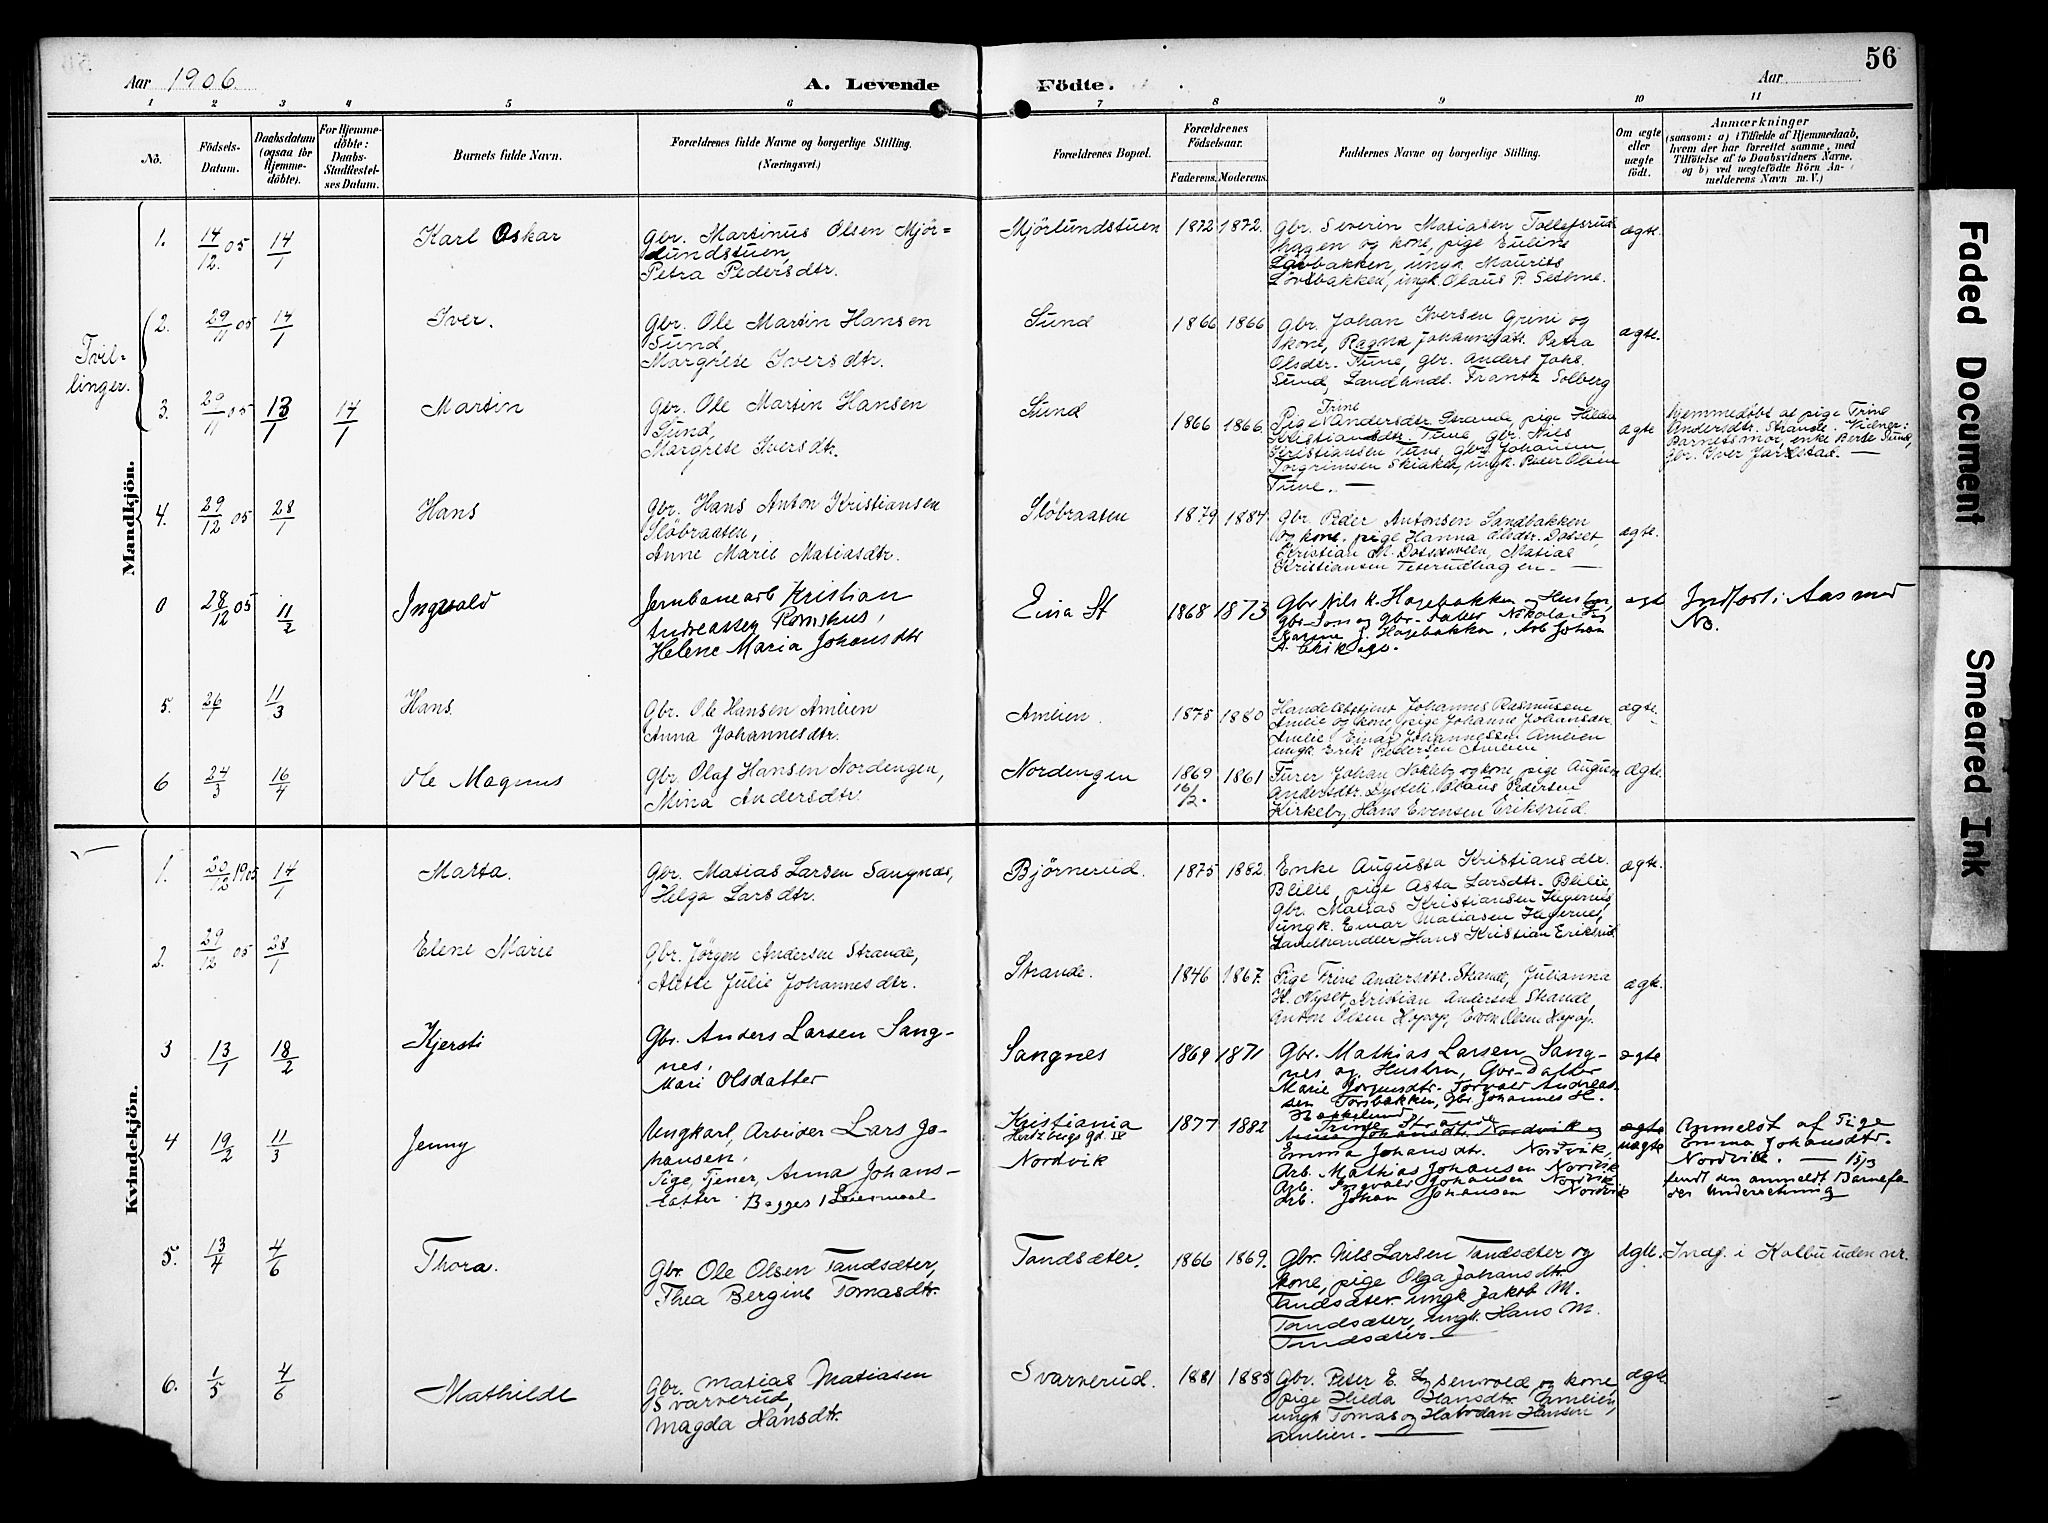 56
Aar 1906.
A. Levende
Födte.
Aar
1 2 3 4 5 6 7 8 9 10 11
No.
Födsels-
Datum.
Daabsdatum
(ogsaa for
Hjemme-
döbte).
For Hjemme-
döbte:
Daabs-
Stadfæstel-
ses Datum.
Barnets fulde Navn.
Forældrenes fulde Navne og borgerlige Stilling.
(Næringsvei.)
Forældrenes Bopæl.
Forældrenes
Födselsaar.
Faderens. Moderens.
Faddernes Navne og borgerlige Stilling.
Om ægte
eller
uægte
födt.
Anmærkninger
(saasom: a) i Tilfælde af Hjemmedaab,
hvem der har forrettet samme, med
Tilföielse af to Daabsvidners Navne,
og b) ved uægtefödte Börn An-
melderens Navn m. V.)
Mandkjön.
Tvil-
linger.
1. 14/12 05 14/1
Karl Oskar
Gbr. Martinus Olsen Mjör-
lundstuen,
Petra Pedersdtr.
Mjörlundstuen 1872 1872.
Gbr. Severin Matiasen Tollefsrud-
hagen og kone, pige Euline
Lövbakken, ungk. Maurits
Lövsbakken, ungk. Olaus P. Sæterne.
ægte.
2. 29/11 05 14/1
Iver.
Gbr. Ole Martin Hansen
Sund,
Margrete Iversdtr.
Sund 1866 1866
Gbr. Johan Iversen Grini og
kone, Ragna Johannesdtr. Petra
Olsdtr. Tune, gbr. Anders Johs.
Sund, Landhndl. Frantz Solberg
ægte.
3. 29/11 05 13/1 14/1
Martin
Gbr. Ole Martin Hansen
Sund,
Margrete Iversdtr.
Sund 1866 1866.
Trine
Pige Andersdtr. Strande, pige Hilda
Kristiansdtr. Tune, Gbr. Nils
Kristiansen Tune, gbr. Johannes
Torgrimsen Skiaker, ungk. Peter Olsen
Tune. —
ægte
Hjemmedøbt af pige Trine
Andersdtr. Strande. Vidner:
Barnets mor, enke Berte Sund,
Gbr. Iver Jarlstad. —
4. 29/12 05 28/1
Hans
Gbr. Hans Anton Kristiansen
Slöbraaten,
Anne Marie Matiasdtr.
Slöbraaten 1879 1884
Gbr. Peder Antonsen Sandbakken
og kone, pige Hanna Olsdtr. Dotset,
Kristian M. Dotsetsveen, Matias
Kristiansen Teterudhagen. —
ægte.
0 28/12 05 11/2
Ingvald
Jernbanearb Kristian
Andreassen Romshus,
Helene Maria Johansdtr
Eina St 1868 1873
Gbr Nils K. Hagebakken og Hustru,
gbr. Søn og gbr. Datter Nikolai og
Karine J. Hagebakken, Arb Johan
A. Eriksen.
ægt
Indført i Aas med
No.
5. 26/1 11/3
Hans
Gbr. Ole Hansen Amlien
Anna Johannesdtr.
Amlien. 1875 1880
Handelsbetjent Johannes Rasmussen
Amlie og kone, pige Johanne Johansdtr.
Amlie, Einar Johannessen Amlien
ungk Erik Pedersen Amlien
ægte.
6 24/3 16/4
Ole Magnus
Gbr Olaf Hansen Nordengen,
Mina Andersdtr.
Nordengen 1869 16/2. 1861
Furer Johan Nøkleby og kone, pige Augusta
Andersdtr. Lystek. Olaus Pedersen
Kirkeby Hans Evensen Eriksrud.
Ægte.
Kvindekjön.
1. 20/12 1905 14/1
Marta.
Gbr. Matias Larsen Sangnæs,
Helga Larsdtr.
Bjørnerud. 1875 1882.
Enke Augusta Kristiansdtr.
Blilie, pige Asta Larsdtr. Blilie,
Gbr. Matias Kristiansen Hegernes,
ungk. Einar Matiasen Hegernes,
Landhandler Hans Kristian Eriksrud.
ægte.
2. 29/12 05 28/1
Elene Marie
Gbr. Jørgen Andersen Strande,
Alette Julie Johannesdtr.
Strande. 1846 1867.
Pige Trine Andersdtr. Strande, Julianna
H. Nyset, Kristian Andersen Strande,
Anton Olsen Hopop, Even Olsen Hopop.
ægte.
3 13/1 18/2
Kjersti
Gbr. Anders Larsen Sang-
nes,
Mari Olsdatter
Sangnes 1869 1871
Gbr. Mathias Larsen Sang-
nes og Hustru, Gbr. Datter
Marie Jørgensdtr. Torvald Andreas-
sen Torsbakken, Gbr. Johannes H.
Nøkkelund
ægte
4 19/2 11/3
Jenny
Ungkarl, Arbeider Lars Jo-
hansen.
Pige, Tjener, Anna Johans-
datter. Begges 1 Leiermaal
Kristiania
Hertzbergs gd. IV
Nordvik
1877 1882
Trine Strande
Anna Johansdtr. Nordvik og
Emma Johansdtr. Nordvik,
Arb. Mathias Johansen Nordvik
Arb. Ingvald Johansen Nordvik
Arb. Johan Johansen Nordvik
ægte
uægte
Anmeldt af Pige
Emma Johansdtr.
Nordvik. — 15/3
sendt den anmeldt Barnefa
der Underretning
5. 13/4 4/6
Thora.
Gbr. Ole Olsen Tandsæter,
Thea Bergine Tomasdtr.
Tandsæter. 1866 1869.
Gbr. Nils Larsen Tandsæter og
kone, pige Olga Johansdtr.
Tandsæter ungk Jakob M.
Tandsæter, ungk. Hans M.
Tandsæter —
Ægte.
Indf. i Kolbu uden nr.
6. 1/5 4/6
Mathilde
Gbr. Matias Matiasen
Svarverud,
Magda Hansdtr.
Svarverud. 1881 1885
Gbr. Peter E. Lysenvold og kone,
pige Hilda Hansdtr. Amlien,
ungk Tomas og Halvdan Hansen
Amlien. —
Ægte.
Faded Document
Smeared Ink